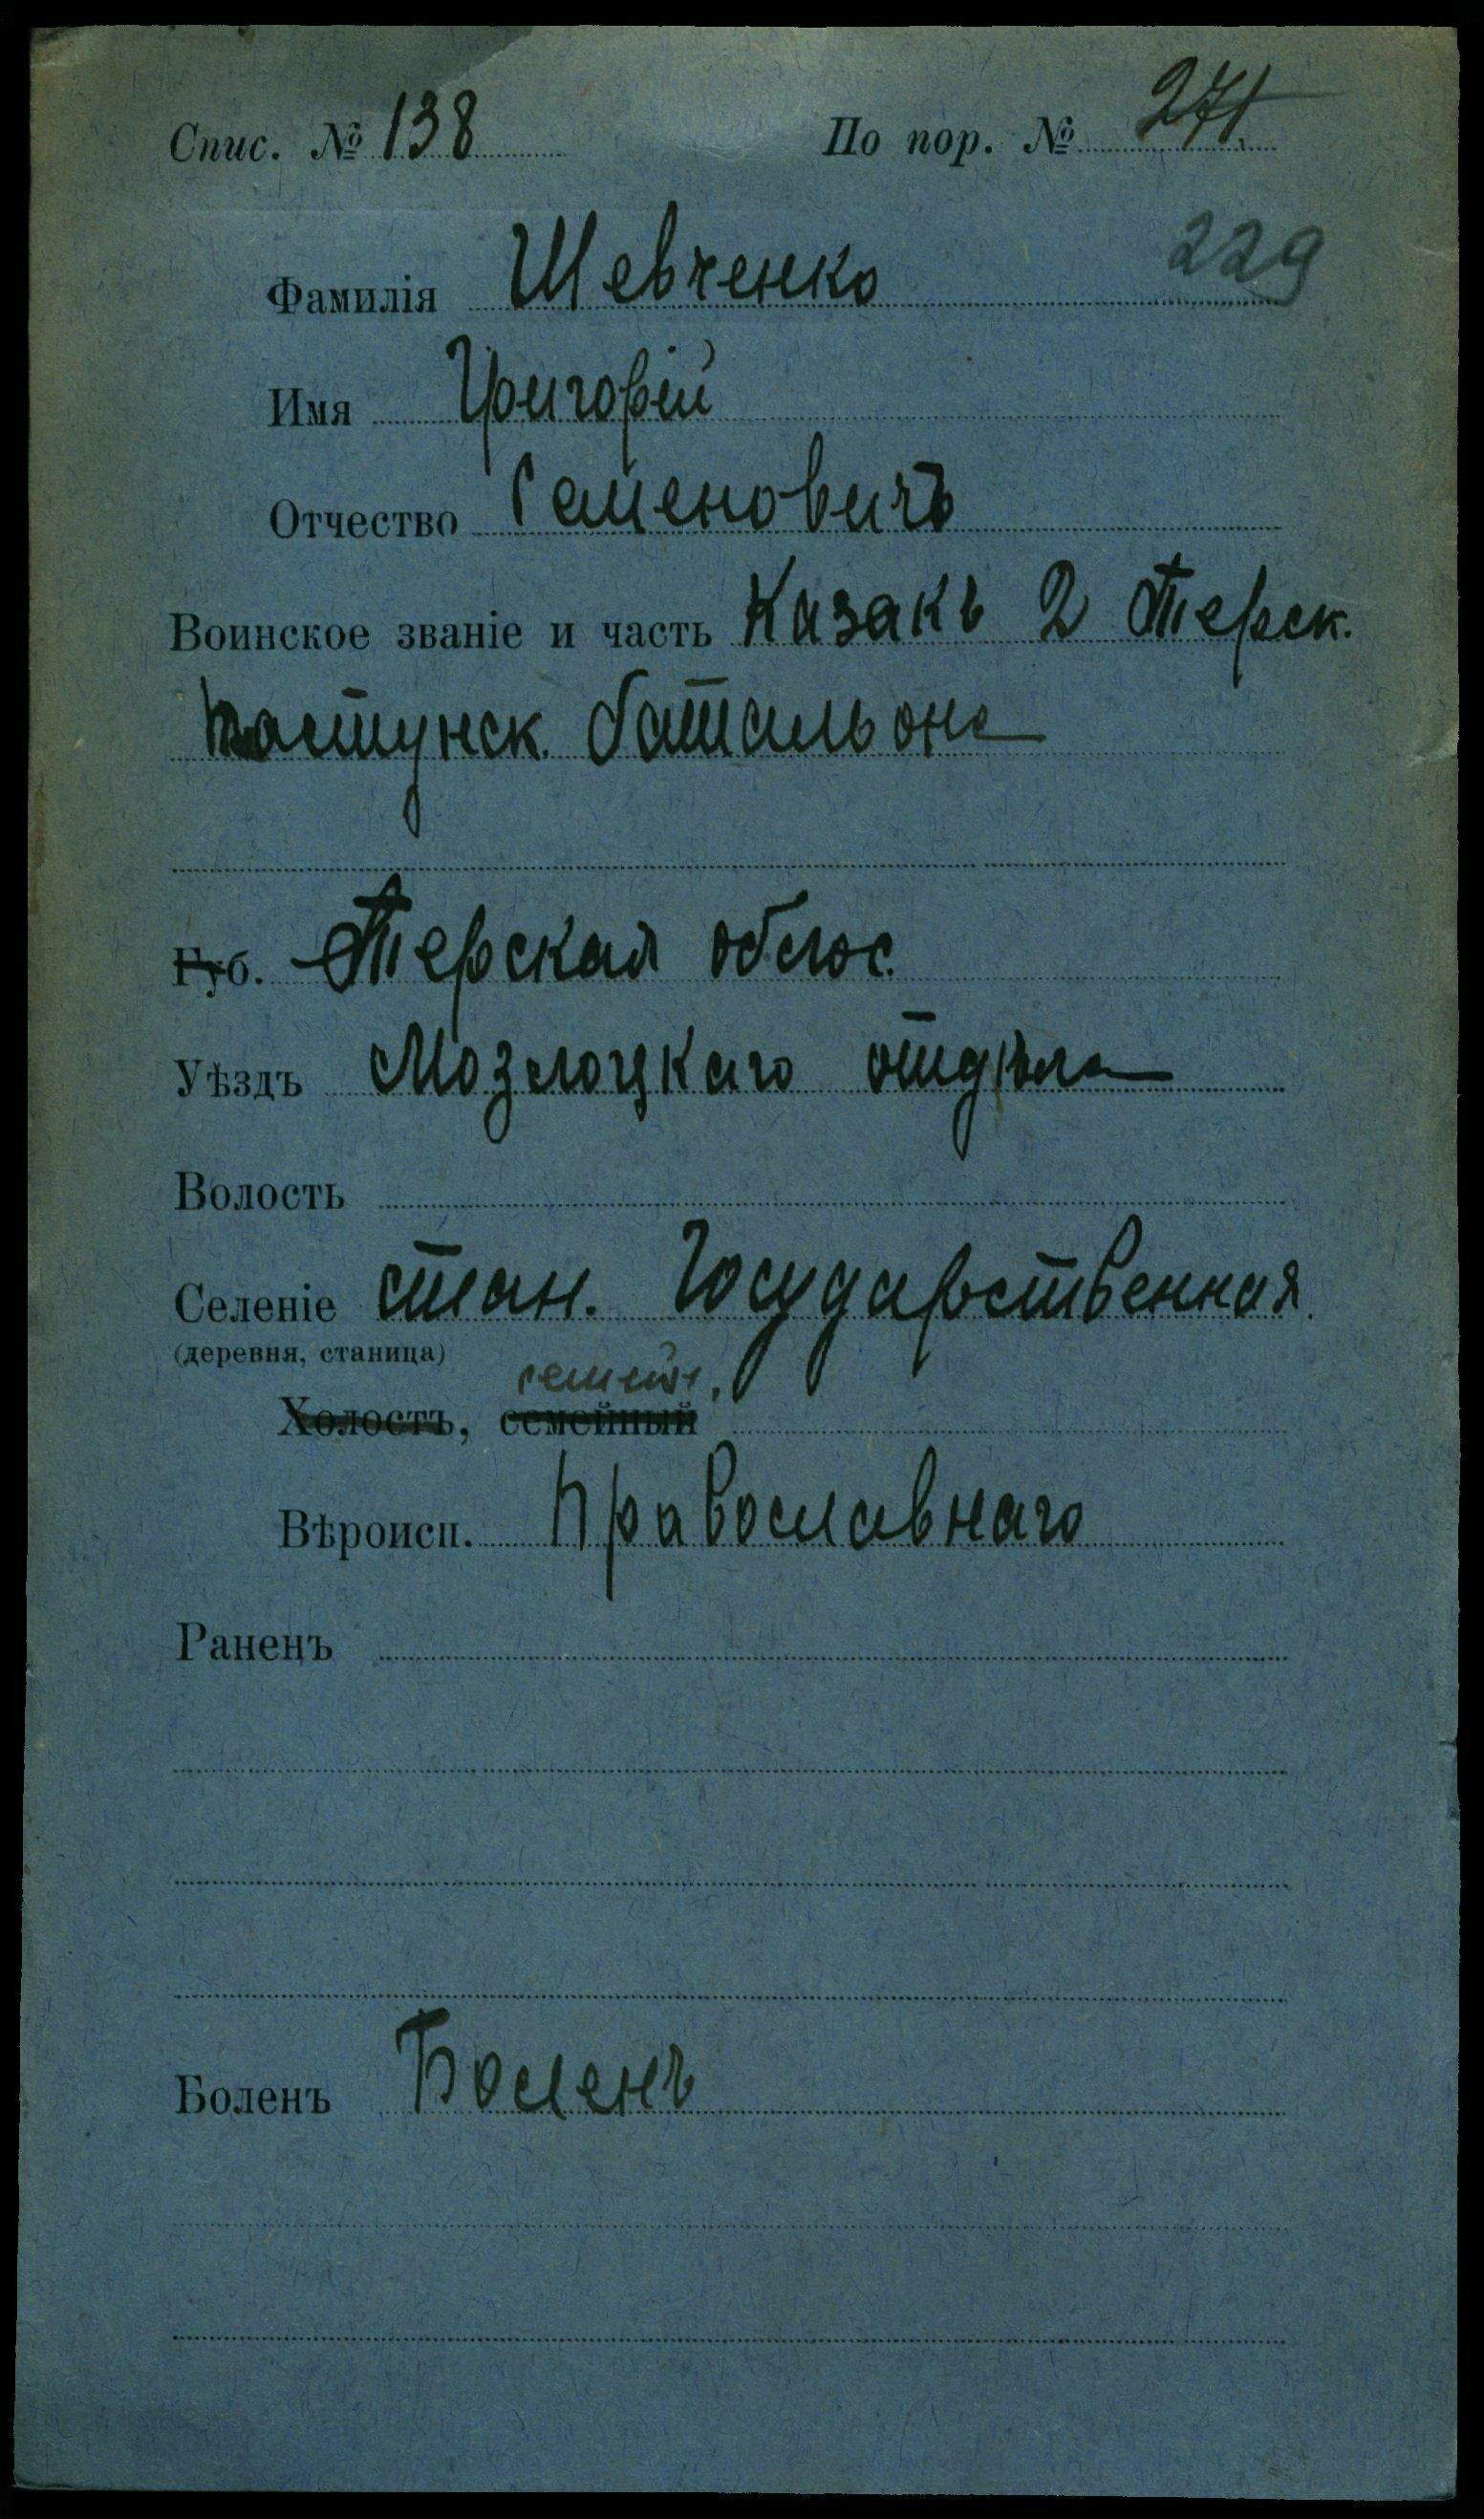 Спис. № 138 По пор. № 271.
229
Фамилія Шевченко
Имя Григорій
Отчество Семеновичъ
Воинское званіе и часть Казакъ 2 Терск.
пластунск. баталъона
Губ. Терская облос.
Уѣздъ Мозлоцкаго отдѣла
Волость
Селеніе стан. Государственная
(деревня, станица)
семейн.
Холостъ, семейный
Вѣроисп. Православнаго
Раненъ
Боленъ Боленъ